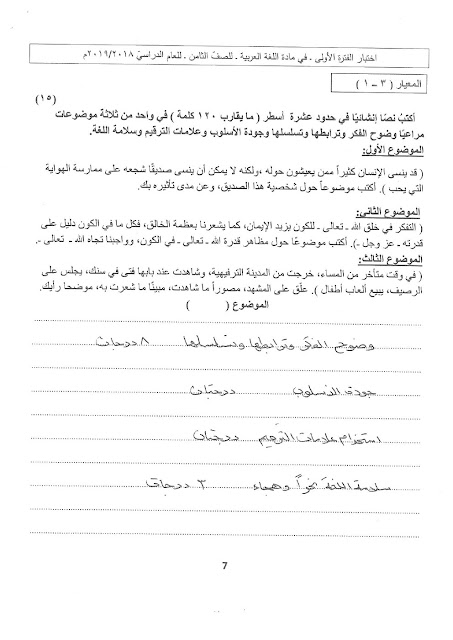 اختبار الفترة الأولى ـ في مادة اللغة العربية ـ للصف الثامن ـ للعام الدراسي ٢٠١٩/٢٠١٨م
المعيار ( ٣ – ١ )
(١٥)
أكتبُ نصًا إنشائيًا في حدود عشرة أسطر ( ما يقارب ١٢٠ كلمة ) في واحد من ثلاثة موضوعات
مراعيًا وضوح الفكر وترابطها وتسلسلها وجودة الأسلوب وعلامات الترقيم وسلامة اللغة.
الموضوع الأول:
( قد ينسى الإنسان كثيراً ممن يعيشون حوله ،ولكنه لا يمكن أن ينسى صديقًا شجعه على ممارسة الهواية
التي يحب ). أكتب موضوعاً حول شخصية هذا الصديق، وعن مدى تأثيره بك.
الموضوع الثاني:
( التفكر في خلق الله ـ تعالى ـ للكون يزيد الإيمان، كما يشعرنا بعظمة الخالق، فكل ما في الكون دليل على
قدرته ـ عز وجل ـ). أكتب موضوعًا حول مظاهر قدرة الله ـ تعالى ـ في الكون، وواجبنا تجاه الله ـ تعالى ـ.
الموضوع الثالث:
( في وقت متأخر من المساء، خرجت من المدينة الترفيهية، وشاهدت عند بابها فتى في سنك، يجلس على
الرصيف، يبيع ألعاب أطفال ). علّق على المشهد، مصوراً ما شاهدت، مبينًا ما شعرت به، موضحا رأيك.
الموضوع ( )
وضوح الفكر وترابطها وتسلسلها ٨ درجات
جودة الأسلوب درجتان
استخدام علامات الترقيم درجتان
سلامة اللغة نحواً وهجاء ٣ درجات
7